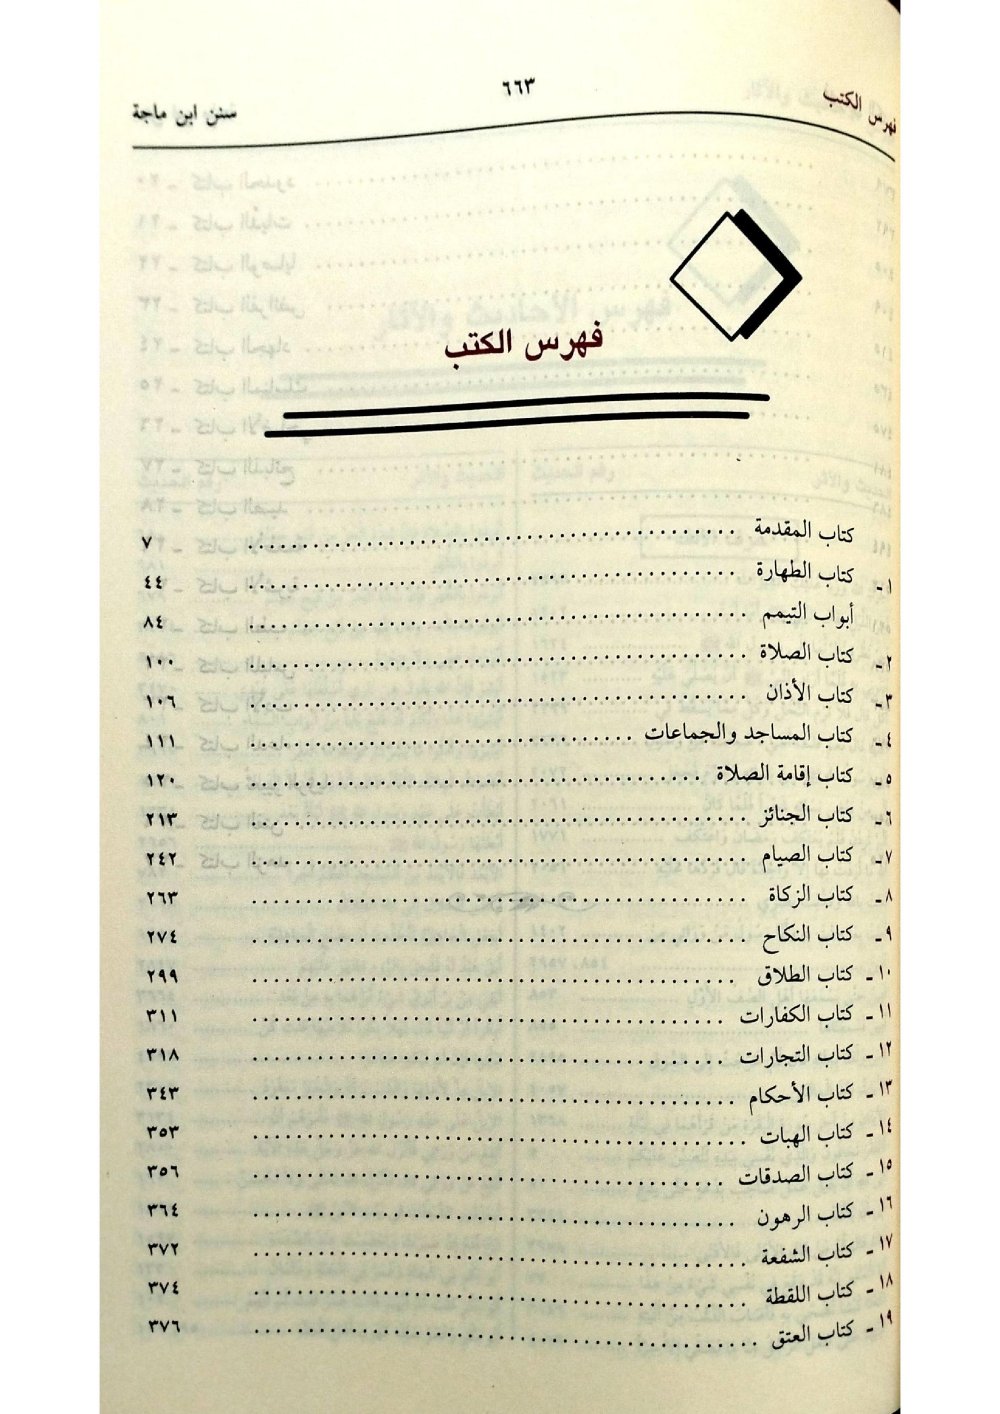 فهرس الكتب ٦٦٣ سنن ابن ماجة
فهرس الكتب
كتاب المقدمة ........ ٧
١ ـ كتاب الطهارة ........ ٤٤
أبواب التيمم ........ ٨٤
٢ ـ كتاب الصلاة ........ ١٠٠
٣ ـ كتاب الأذان ........ ١٠٦
٤ ـ كتاب المساجد والجماعات ........ ١١١
٥ ـ كتاب إقامة الصلاة ........ ١٢٠
٦ ـ كتاب الجنائز ........ ٢١٣
٧ ـ كتاب الصيام ........ ٢٤٢
٨ ـ كتاب الزكاة ........ ٢٦٣
٩ ـ كتاب النكاح ........ ٢٧٤
١٠ ـ كتاب الطلاق ........ ٢٩٩
١١ ـ كتاب الكفارات ........ ٣١١
١٢ ـ كتاب التجارات ........ ٣١٨
١٣ ـ كتاب الأحكام ........ ٣٤٣
١٤ ـ كتاب الهبات ........ ٣٥٣
١٥ ـ كتاب الصدقات ........ ٣٥٦
١٦ ـ كتاب الرهون ........ ٣٦٤
١٧ ـ كتاب الشفعة ........ ٣٧٢
١٨ ـ كتاب اللقطة ........ ٣٧٤
١٩ ـ كتاب العتق ........ ٣٧٦